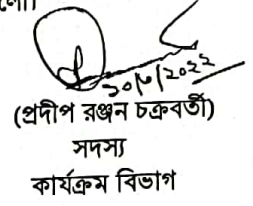 ৩০/৬/২০২২
(প্রদীপ রঞ্জন চক্রবর্তী)
সদস্য
কার্যক্রম বিভাগ